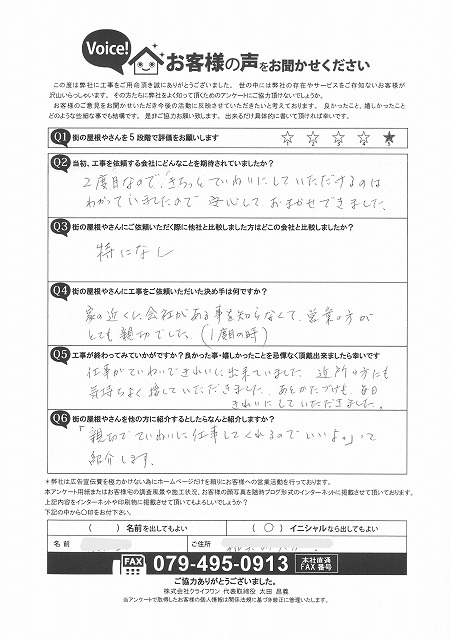 Voice!
お客様の声をお聞かせください
この度は弊社に工事をご用命頂き誠にありがとうございました。世の中には弊社の存在やサービスをご存知ないお客様が
沢山いらっしゃいます。その方たちに弊社をよく知って頂くためのアンケートにご協力頂けないでしょうか。
お客様のご意見をお聞かせいただき今後の活動に反映させていただきたいと考えております。良かったこと、嬉しかったこと
どのような些細な事でも結構です。是非ご協力お願い致します。出来るだけ具体的に書いて頂ければ幸いです。
Q1 街の屋根やさんを5段階で評価をお願いします ☆ ☆ ☆ ☆ ★
Q2 当初、工事を依頼する会社にどんなことを期待されていましたか?
2度目なので、きちっとていねいにしていただけるのは
わかっていましたので安心しておまかせできました。
Q3 街の屋根やさんにご依頼いただく際に他社と比較しました方はどこの会社と比較しましたか?
特になし
Q4 街の屋根やさんに工事をご依頼いただいた決め手は何ですか?
家の近くに会社がある事を知らなくて、営業の方が
とても親切でした。(1度目の時)
Q5 工事が終わってみていかがですか?良かった事・嬉しかったことを忌憚なく頂戴出来ましたら幸いです
仕事がていねいできれいに出来ていました。近所の方にも
気持ちよく接していただきました。あとかたづけも、毎日
きれいにしていただきました。
Q6 街の屋根やさんを他の方に紹介するとしたらなんと紹介しますか?
「親切でていねいに仕事してくれるのでいいよ。」って
紹介します。
*弊社は広告宣伝費を極力かけない為にホームページだけを頼りにお客様への営業活動を行っております。
本アンケート用紙またはお客様宅の調査風景や施工状況、お客様の顔写真を随時ブログ形式のインターネットに掲載させて頂いております。
上記内容をインターネットや印刷物に掲載させて頂いてもよろしいでしょうか?
下記の中から〇印をお付下さい。
( ) 名前を出してもよい (〇) イニシャルなら出してもよい
名前 ご住所
FAX 079-495-0913 本社直通 FAX番号
ご協力ありがとうございました。
株式会社クライフワン 代表取締役 太田 昌義
当アンケートで取得したお客様の個人情報は関係法規に基づき厳正に管理いたします。